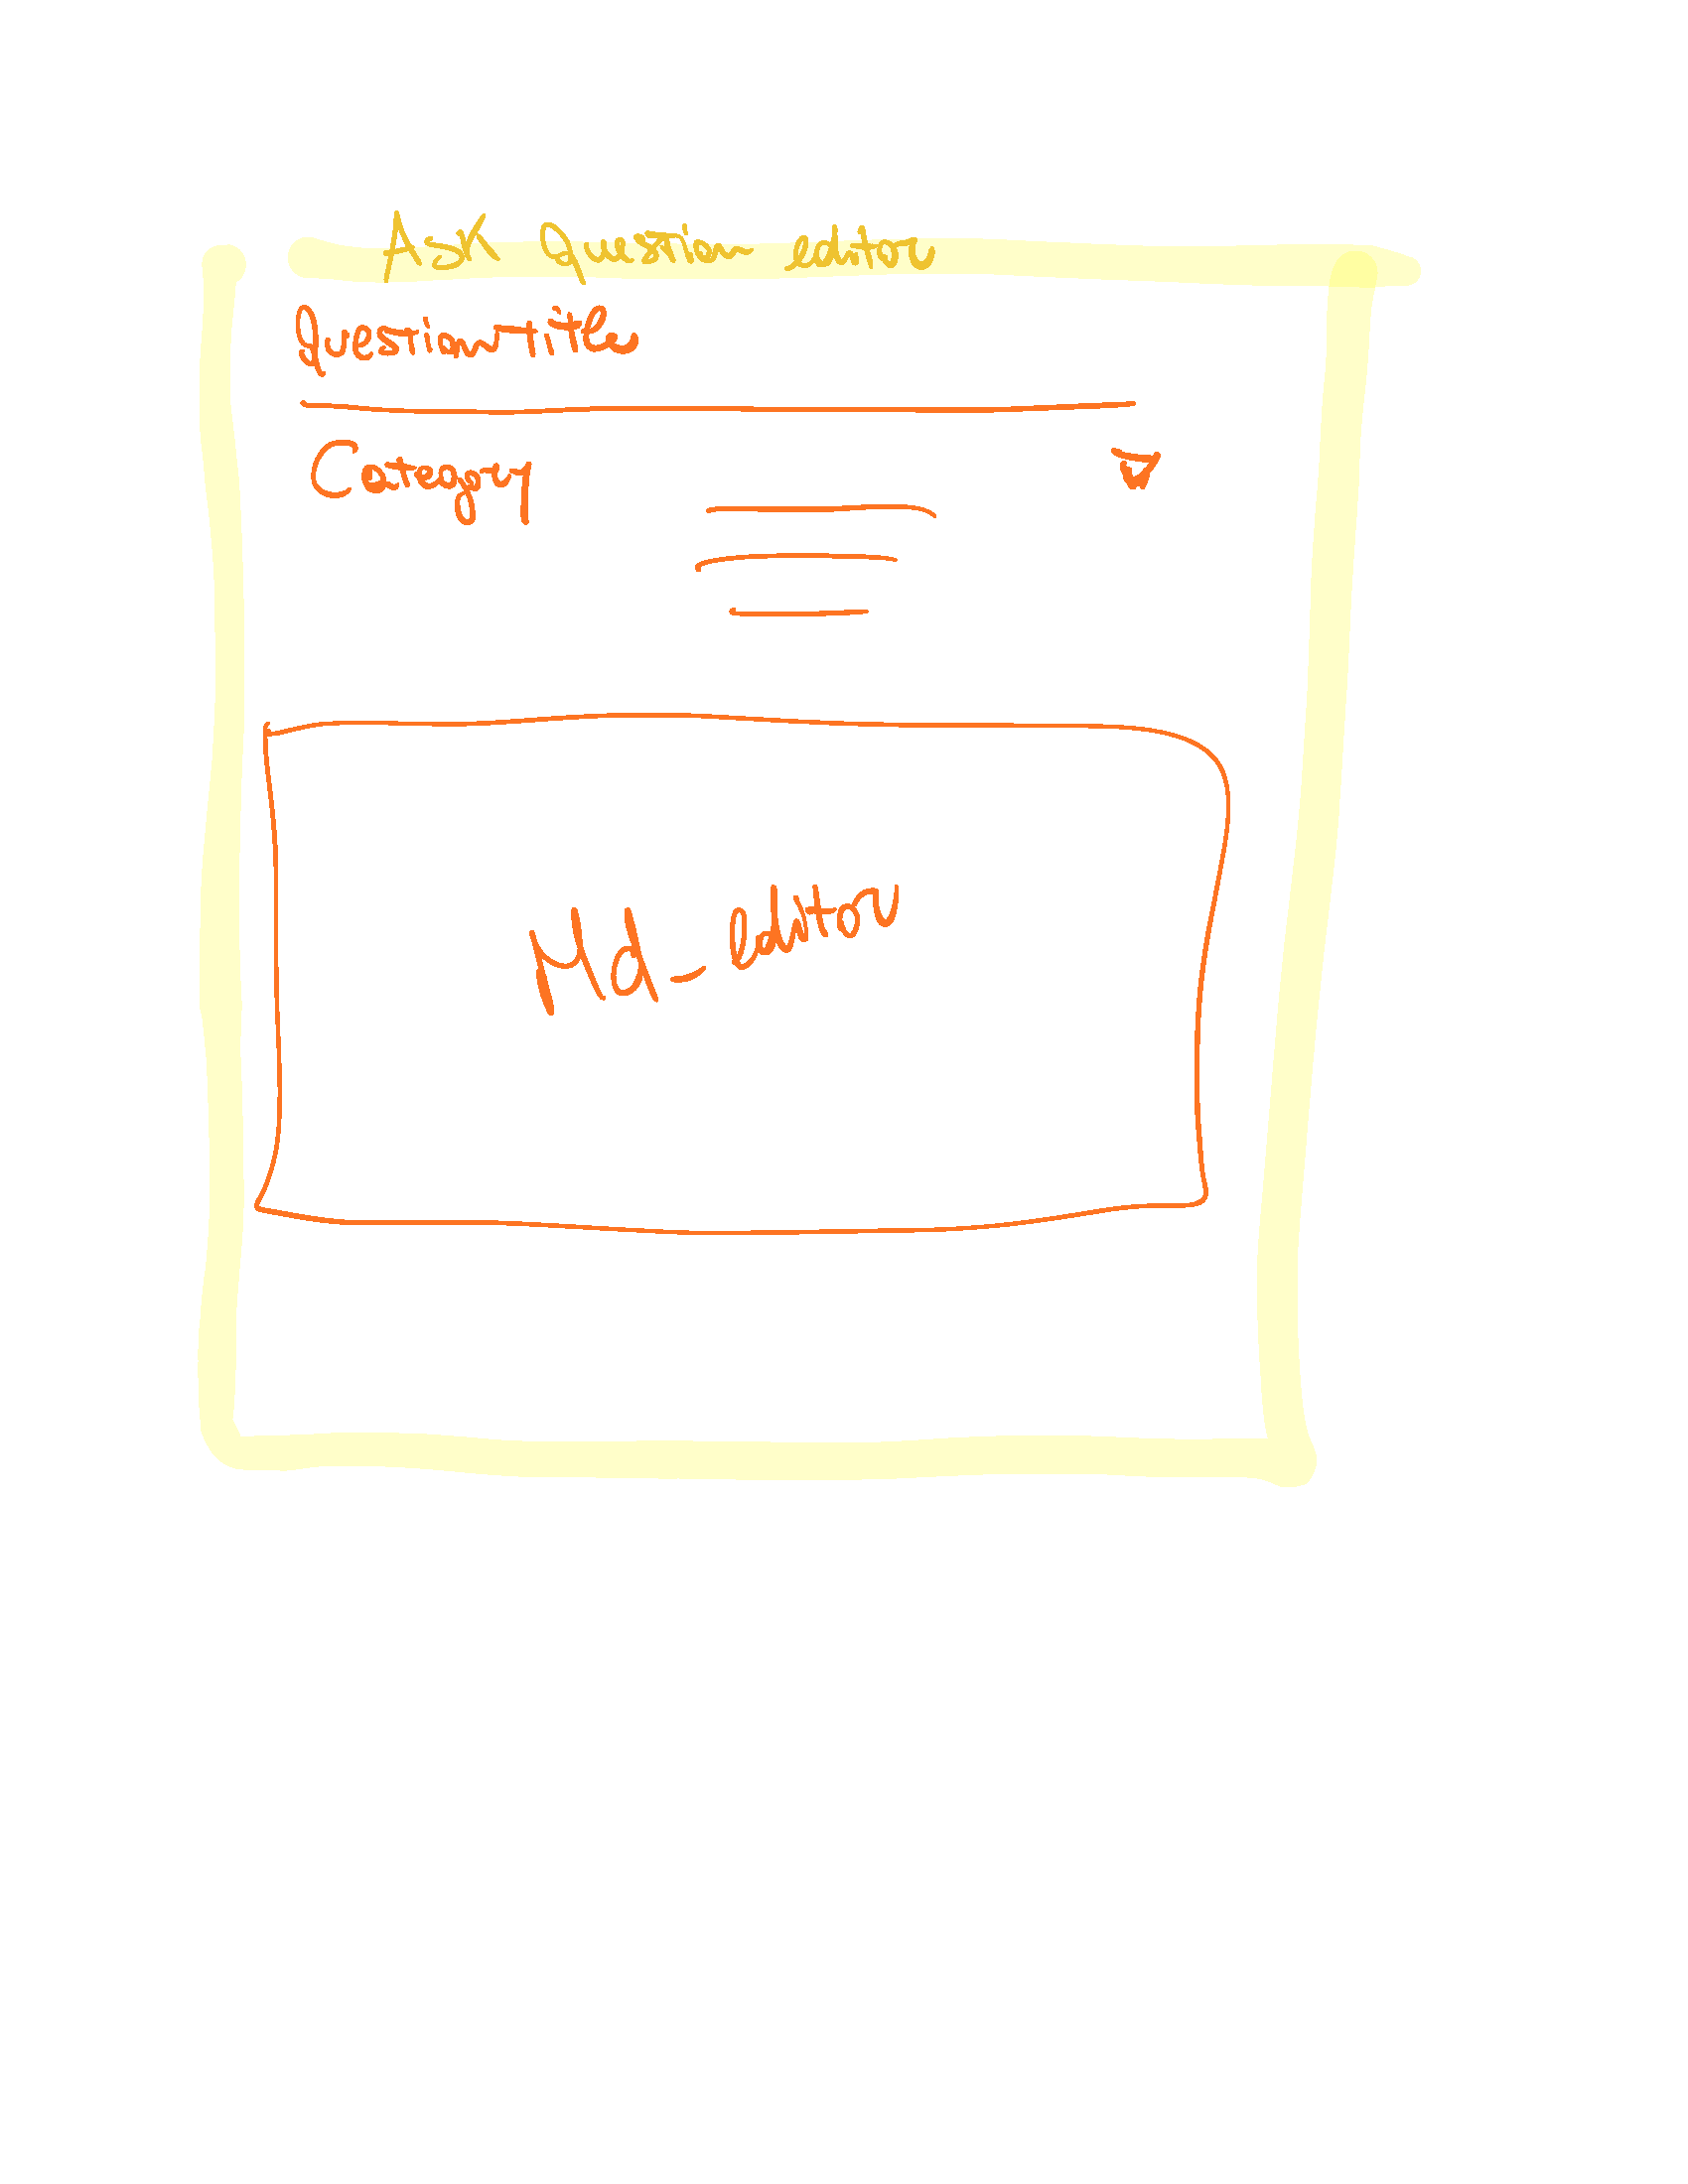 Ask Question editor
Question title
Category
Md_editor